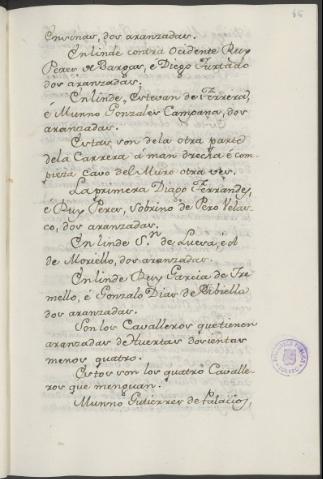 Ensinas, dos aranzadas.
En linde contra Ocidente Ruy
Perez de Bargas, e Diego Furtado
dos aranzadas.
En linde, Estevan de Ferrera,
é Munno Gonzales Campana, dos
aranzadas.
Estas son de la otra parte
de la Carrera a man drecha é com
pieza cavo del Muro otra ves.
La primera Diago Ferrandes,
é Ruy Peres, sobrino de Pero Velas
co, dos aranzadas.
En linde S.n de Lueva, é A
de Moriello, dos aranzadas.
En linde Ruy Garcia de Tre
mello, é Gonzalo Dias de Ribiella
dos aranzadas.
Son los Cavalleros que tienen
aranzadas de Huertas dosientas
menos quatro.
Estos son los quatro Cavalle-
ros que menguan.
Munno Gutierres de Palacios,